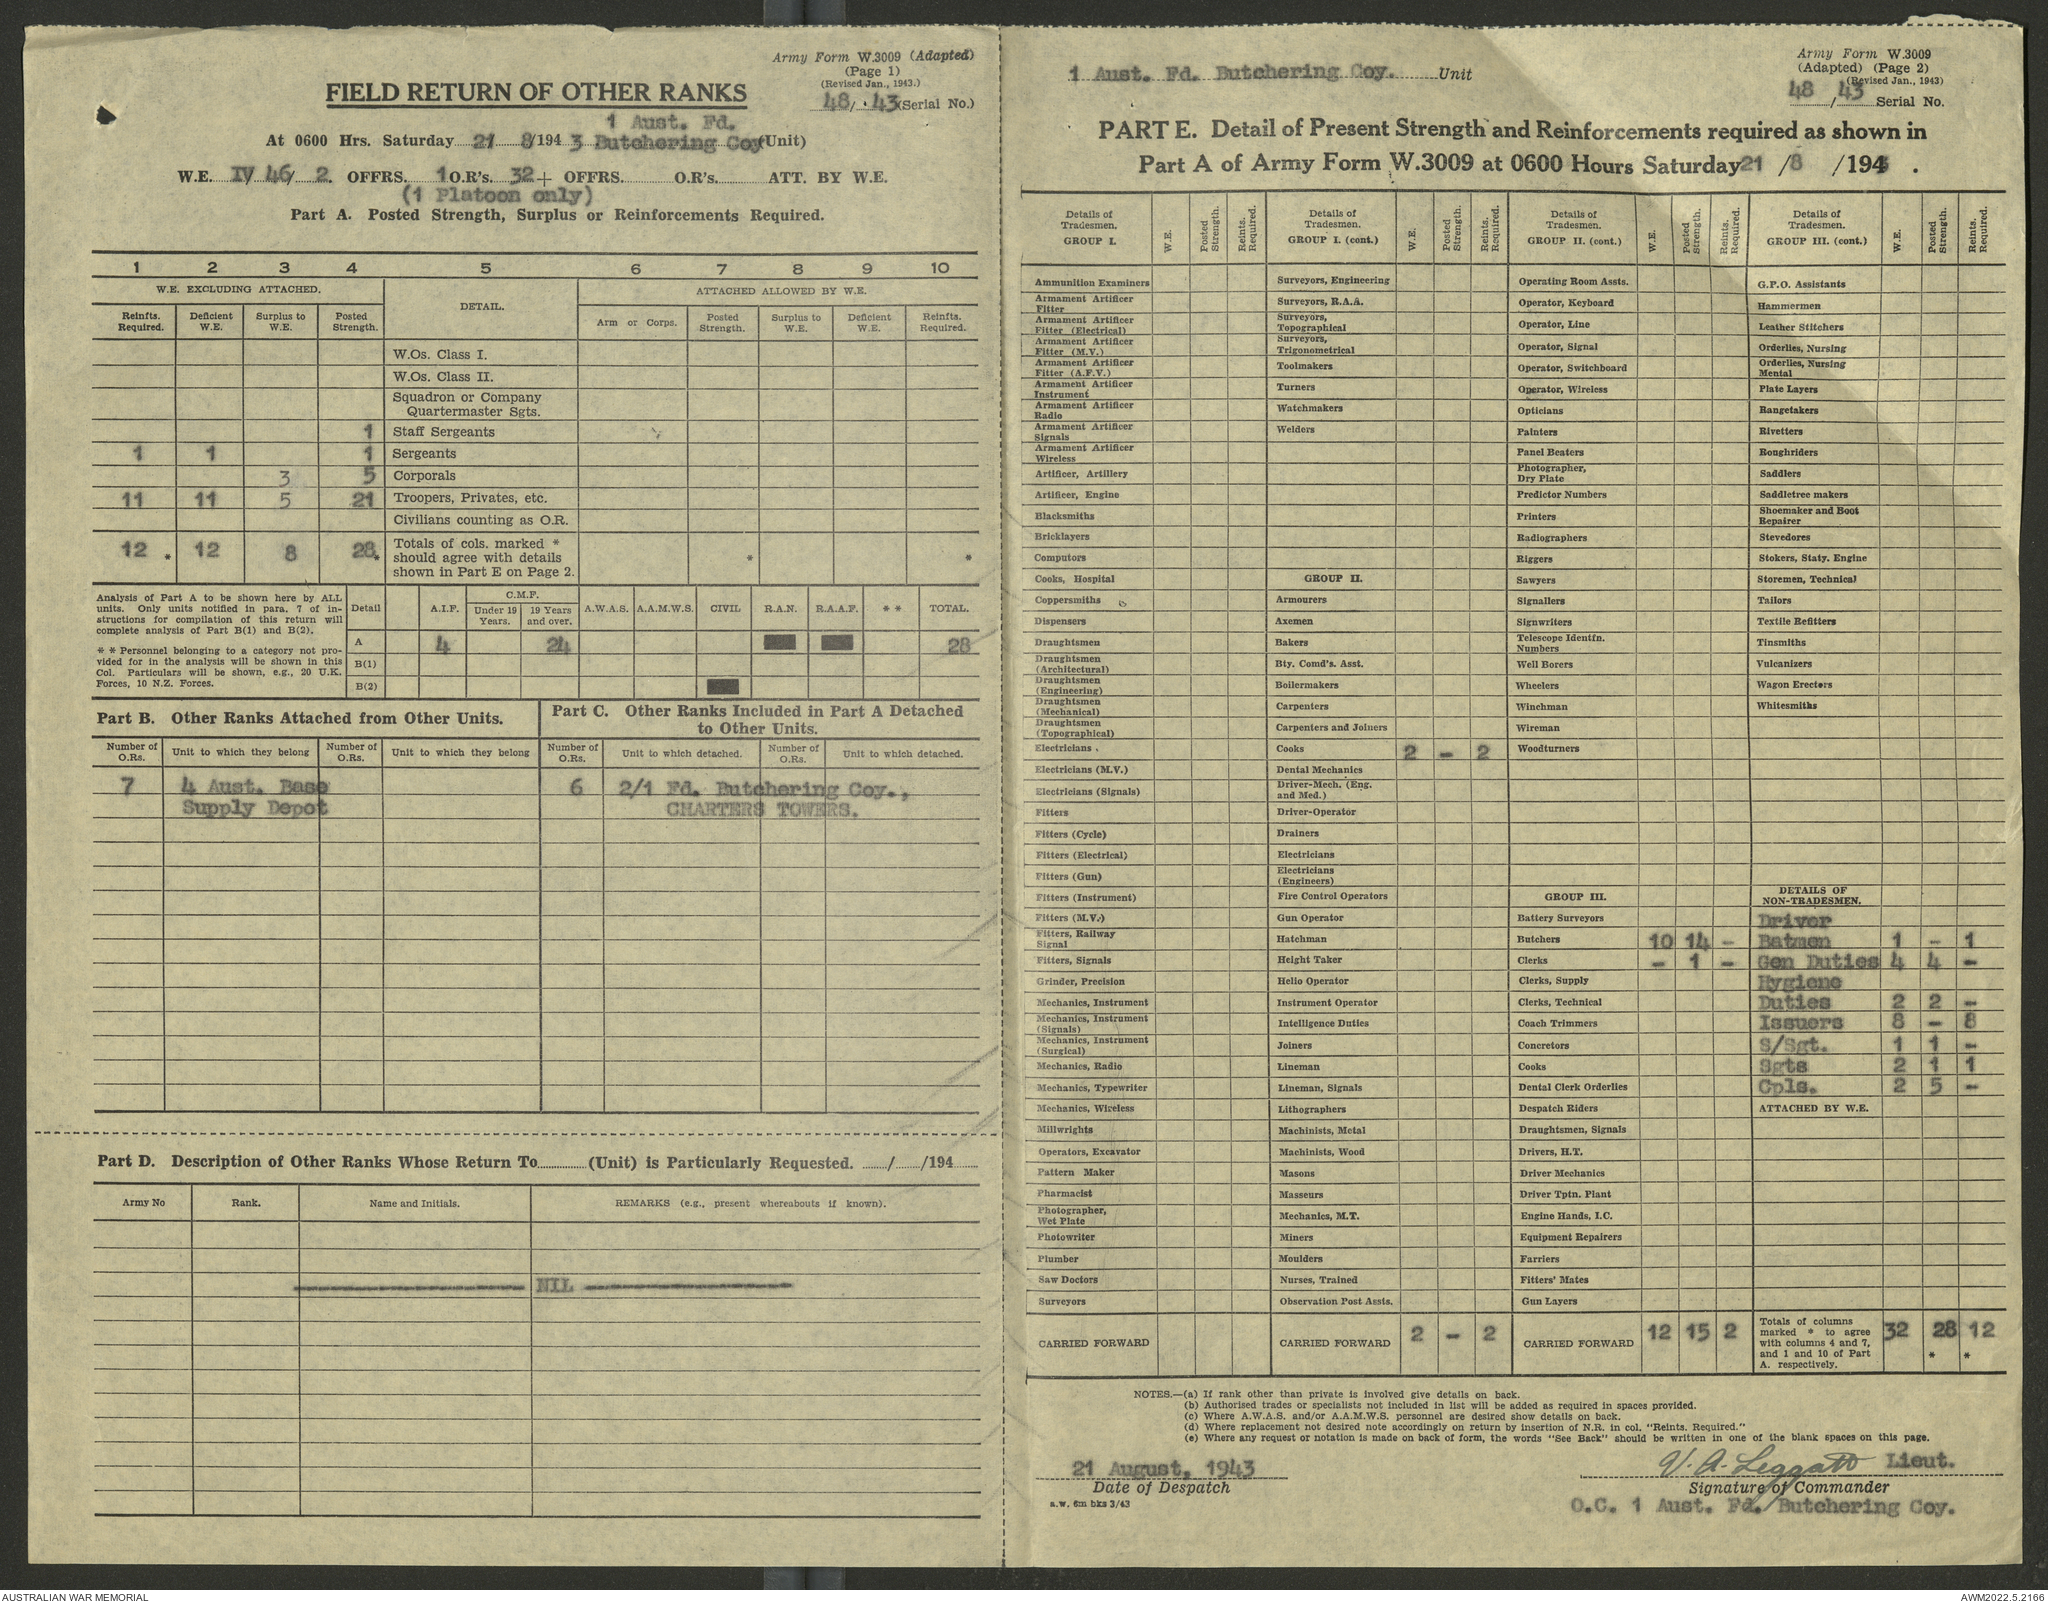 Army Form W.3009 (Adapted)
(Page 1)
(Revised Jan., 1943.)
FIELD RETURN OF OTHER RANKS
48/ 43 (Serial No.)
1 Aust. Fd.
At 0600 Hrs. Saturday 21 8/1943 Butchering Coy (Unit)
W.E. IV/ 46/ 2. OFFRS. 1 O.R's. 32 + OFFRS. O.R's. ATT. BY W.E.
(1 Platoon only)
Part A. Posted Strength, Surplus or Reinforcements Required.
1 2 3 4 5 6 7 8 9 10
W.E. EXCLUDING ATTACHED. DETAIL. ATTACHED ALLOWED BY W.E.
Reinfts. Required. Deficient W.E. Surplus to W.E. Posted Strength. Arm or Corps. Posted Strength. Surplus to W.E. Deficient W.E. Reinfts. Required.
W.Os. Class I.
W.Os. Class II.
Squadron or Company
Quartermaster Sgts.
1 Staff Sergeants
1 1 1 Sergeants
3 5 Corporals
11 11 5 21 Troopers, Privates, etc.
Civilians counting as O.R.
12 * 12 8 28 * Totals of cols. marked * * *
should agree with details
shown in Part E on Page 2.
Analysis of Part A to be shown here by ALL
units. Only units notified in para. 7 of in-
structions for compilation of this return will
complete analysis of Part B(1) and B(2).
* * Personnel belonging to a category not pro-
vided for in the analysis will be shown in this
Col. Particulars will be shown, e.g., 20 U.K.
Forces, 10 N.Z. Forces.
Detail A.I.F. C.M.F. A.W.A.S. A.A.M.W.S. CIVIL R.A.N. R.A.A.F. * * TOTAL.
Under 19 Years. 19 Years and over.
A 4 24 28
B(1)
B(2)
Part B. Other Ranks Attached from Other Units.
Part C. Other Ranks Included in Part A Detached
to Other Units.
Number of O.Rs. Unit to which they belong Number of O.Rs. Unit to which they belong Number of O.Rs. Unit to which detached. Number of O.Rs. Unit to which detached.
7 4 Aust. Base 6 2/1 Fd. Butchering Coy.,
Supply Depot CHARTERS TOWERS.
Part D. Description of Other Ranks Whose Return To (Unit) is Particularly Requested. / /194
Army No Rank. Name and Initials. REMARKS (e.g., present whereabouts if known).
NIL
1 Aust. Fd. Butchering Coy. Unit
Army Form W.3009
(Adapted) (Page 2)
(Revised Jan., 1943)
48 / 43 Serial No.
PART E. Detail of Present Strength and Reinforcements required as shown in
Part A of Army Form W.3009 at 0600 Hours Saturday 21 /8 /194 .
Details of Tradesmen. GROUP I. W.E. Posted Strength. Reints. Required.
Ammunition Examiners
Armament Artificer Fitter
Armament Artificer Fitter (Electrical)
Armament Artificer Fitter (M.V.)
Armament Artificer Fitter (A.F.V.)
Armament Artificer Instrument
Armament Artificer Radio
Armament Artificer Signals
Armament Artificer Wireless
Artificer, Artillery
Artificer, Engine
Blacksmiths
Bricklayers
Computors
Cooks, Hospital
Coppersmiths
Dispensers
Draughtsmen
Draughtsmen (Architectural)
Draughtsmen (Engineering)
Draughtsmen (Mechanical)
Draughtsmen (Topographical)
Electricians
Electricians (M.V.)
Electricians (Signals)
Fitters
Fitters (Cycle)
Fitters (Electrical)
Fitters (Gun)
Fitters (Instrument)
Fitters (M.V.)
Fitters, Railway Signal
Fitters, Signals
Grinder, Precision
Mechanics, Instrument
Mechanics, Instrument (Signals)
Mechanics, Instrument (Surgical)
Mechanics, Radio
Mechanics, Typewriter
Mechanics, Wireless
Millwrights
Operators, Excavator
Pattern Maker
Pharmacist
Photographer, Wet Plate
Photowriter
Plumber
Saw Doctors
Surveyors
CARRIED FORWARD
Details of Tradesmen. GROUP I. (cont.) W.E. Posted Strength. Reints. Required.
Surveyors, Engineering
Surveyors, R.A.A.
Surveyors, Topographical
Surveyors, Trigonometrical
Toolmakers
Turners
Watchmakers
Welders
GROUP II.
Armourers
Axemen
Bakers
Bty. Comd's. Asst.
Boilermakers
Carpenters
Carpenters and Joiners
Cooks 2 - 2
Dental Mechanics
Driver-Mech. (Eng. and Med.)
Driver-Operator
Drainers
Electricians
Electricians (Engineers)
Fire Control Operators
Gun Operator
Hatchman
Height Taker
Helio Operator
Instrument Operator
Intelligence Duties
Joiners
Lineman
Lineman, Signals
Lithographers
Machinists, Metal
Machinists, Wood
Masons
Masseurs
Mechanics, M.T.
Miners
Moulders
Nurses, Trained
Observation Post Assts.
CARRIED FORWARD 2 - 2
Details of Tradesmen. GROUP II. (cont.) W.E. Posted Strength. Reints. Required.
Operating Room Assts.
Operator, Keyboard
Operator, Line
Operator, Signal
Operator, Switchboard
Operator, Wireless
Opticians
Painters
Panel Beaters
Photographer, Dry Plate
Predictor Numbers
Printers
Radiographers
Riggers
Sawyers
Signallers
Signwriters
Telescope Identfn. Numbers
Well Borers
Wheelers
Winchman
Wireman
Woodturners
GROUP III.
Battery Surveyors
Butchers 10 14 -
Clerks - 1 -
Clerks, Supply
Clerks, Technical
Coach Trimmers
Concretors
Cooks
Dental Clerk Orderlies
Despatch Riders
Draughtsmen, Signals
Drivers, H.T.
Driver Mechanics
Driver Tptn. Plant
Engine Hands, I.C.
Equipment Repairers
Farriers
Fitters' Mates
Gun Layers
CARRIED FORWARD 12 15 2
Details of Tradesmen. GROUP III. (cont.) W.E. Posted Strength. Reints. Required.
G.P.O. Assistants
Hammermen
Leather Stitchers
Orderlies, Nursing
Orderlies, Nursing Mental
Plate Layers
Rangetakers
Rivetters
Roughriders
Saddlers
Saddletree makers
Shoemaker and Boot Repairer
Stevedores
Stokers, Staty. Engine
Storemen, Technical
Tailors
Textile Refitters
Tinsmiths
Vulcanizers
Wagon Erectors
Whitesmiths
DETAILS OF
NON-TRADESMEN.
Driver
Batmen 1 - 1
Gen Duties 4 4 -
Hygiene
Duties 2 2 -
Issuers 8 - 8
S/Sgt. 1 1 -
Sgts 2 1 1
Cpls. 2 5 -
ATTACHED BY W.E.
Totals of columns
marked * to agree 32 28 12
with columns 4 and 7,
and 1 and 10 of Part * *
A. respectively.
NOTES.—(a) If rank other than private is involved give details on back.
(b) Authorised trades or specialists not included in list will be added as required in spaces provided.
(c) Where A.W.A.S. and/or A.A.M.W.S. personnel are desired show details on back.
(d) Where replacement not desired note accordingly on return by insertion of N.R. in col. "Reints. Required."
(e) Where any request or notation is made on back of form, the words "See Back" should be written in one of the blank spaces on this page.
21 August, 1943
Date of Despatch
a.w. 6m bks 3/43
V. A. Leggatt Lieut.
Signature of Commander
O.C. 1 Aust. Fd. Butchering Coy.
AUSTRALIAN WAR MEMORIAL
AWM2022.5.2166